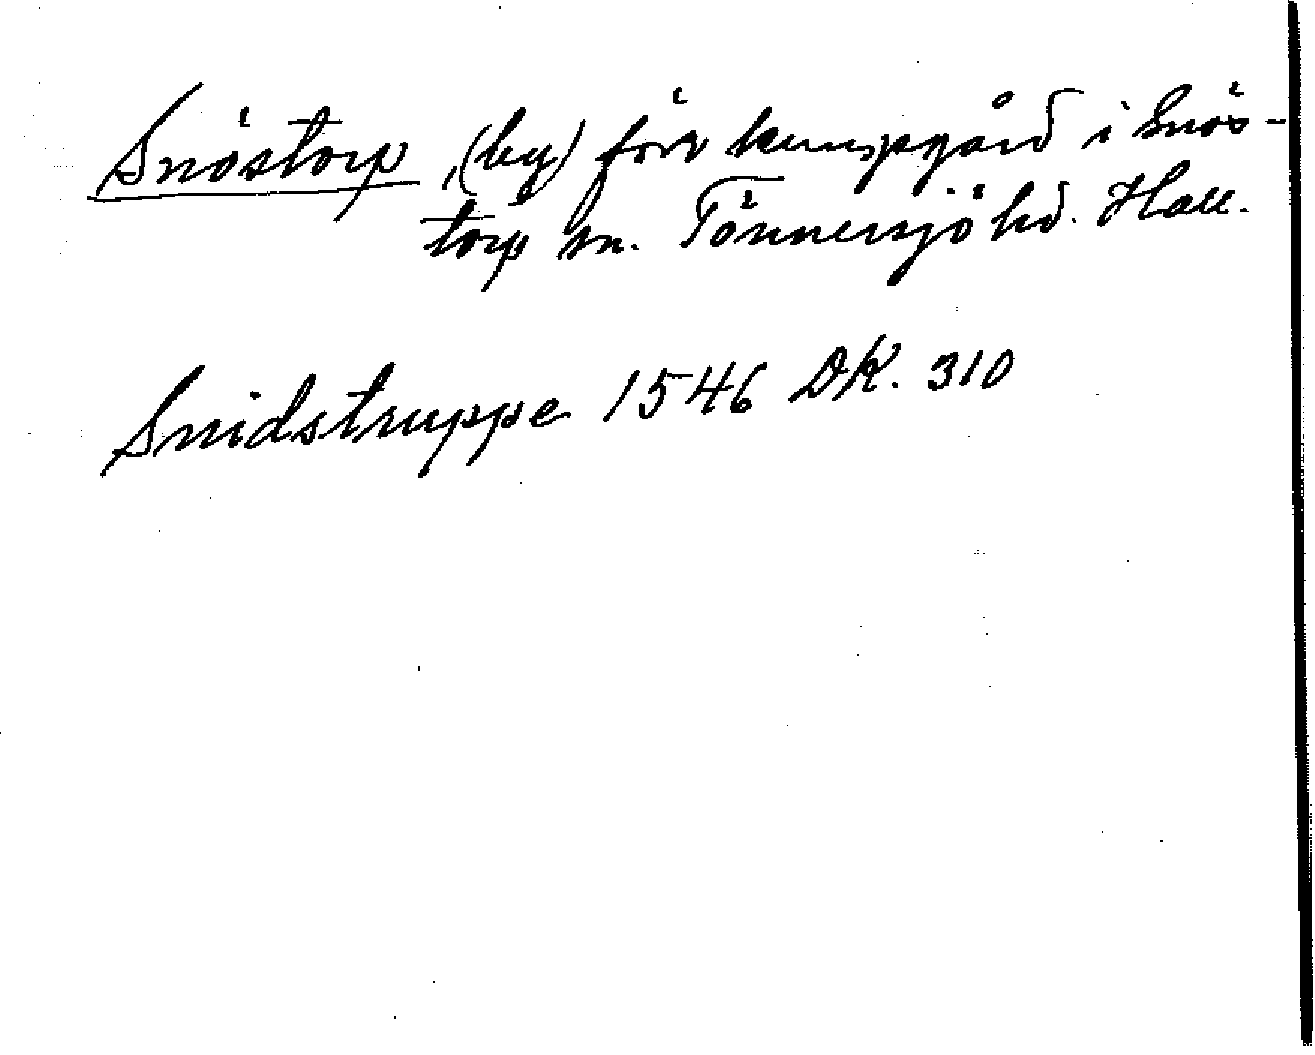 Snöstorp, (by) förr kungsgård i Snös-
torp sn. Tönnersjö hd. Hall.
Snidstruppe 1546 DK. 310